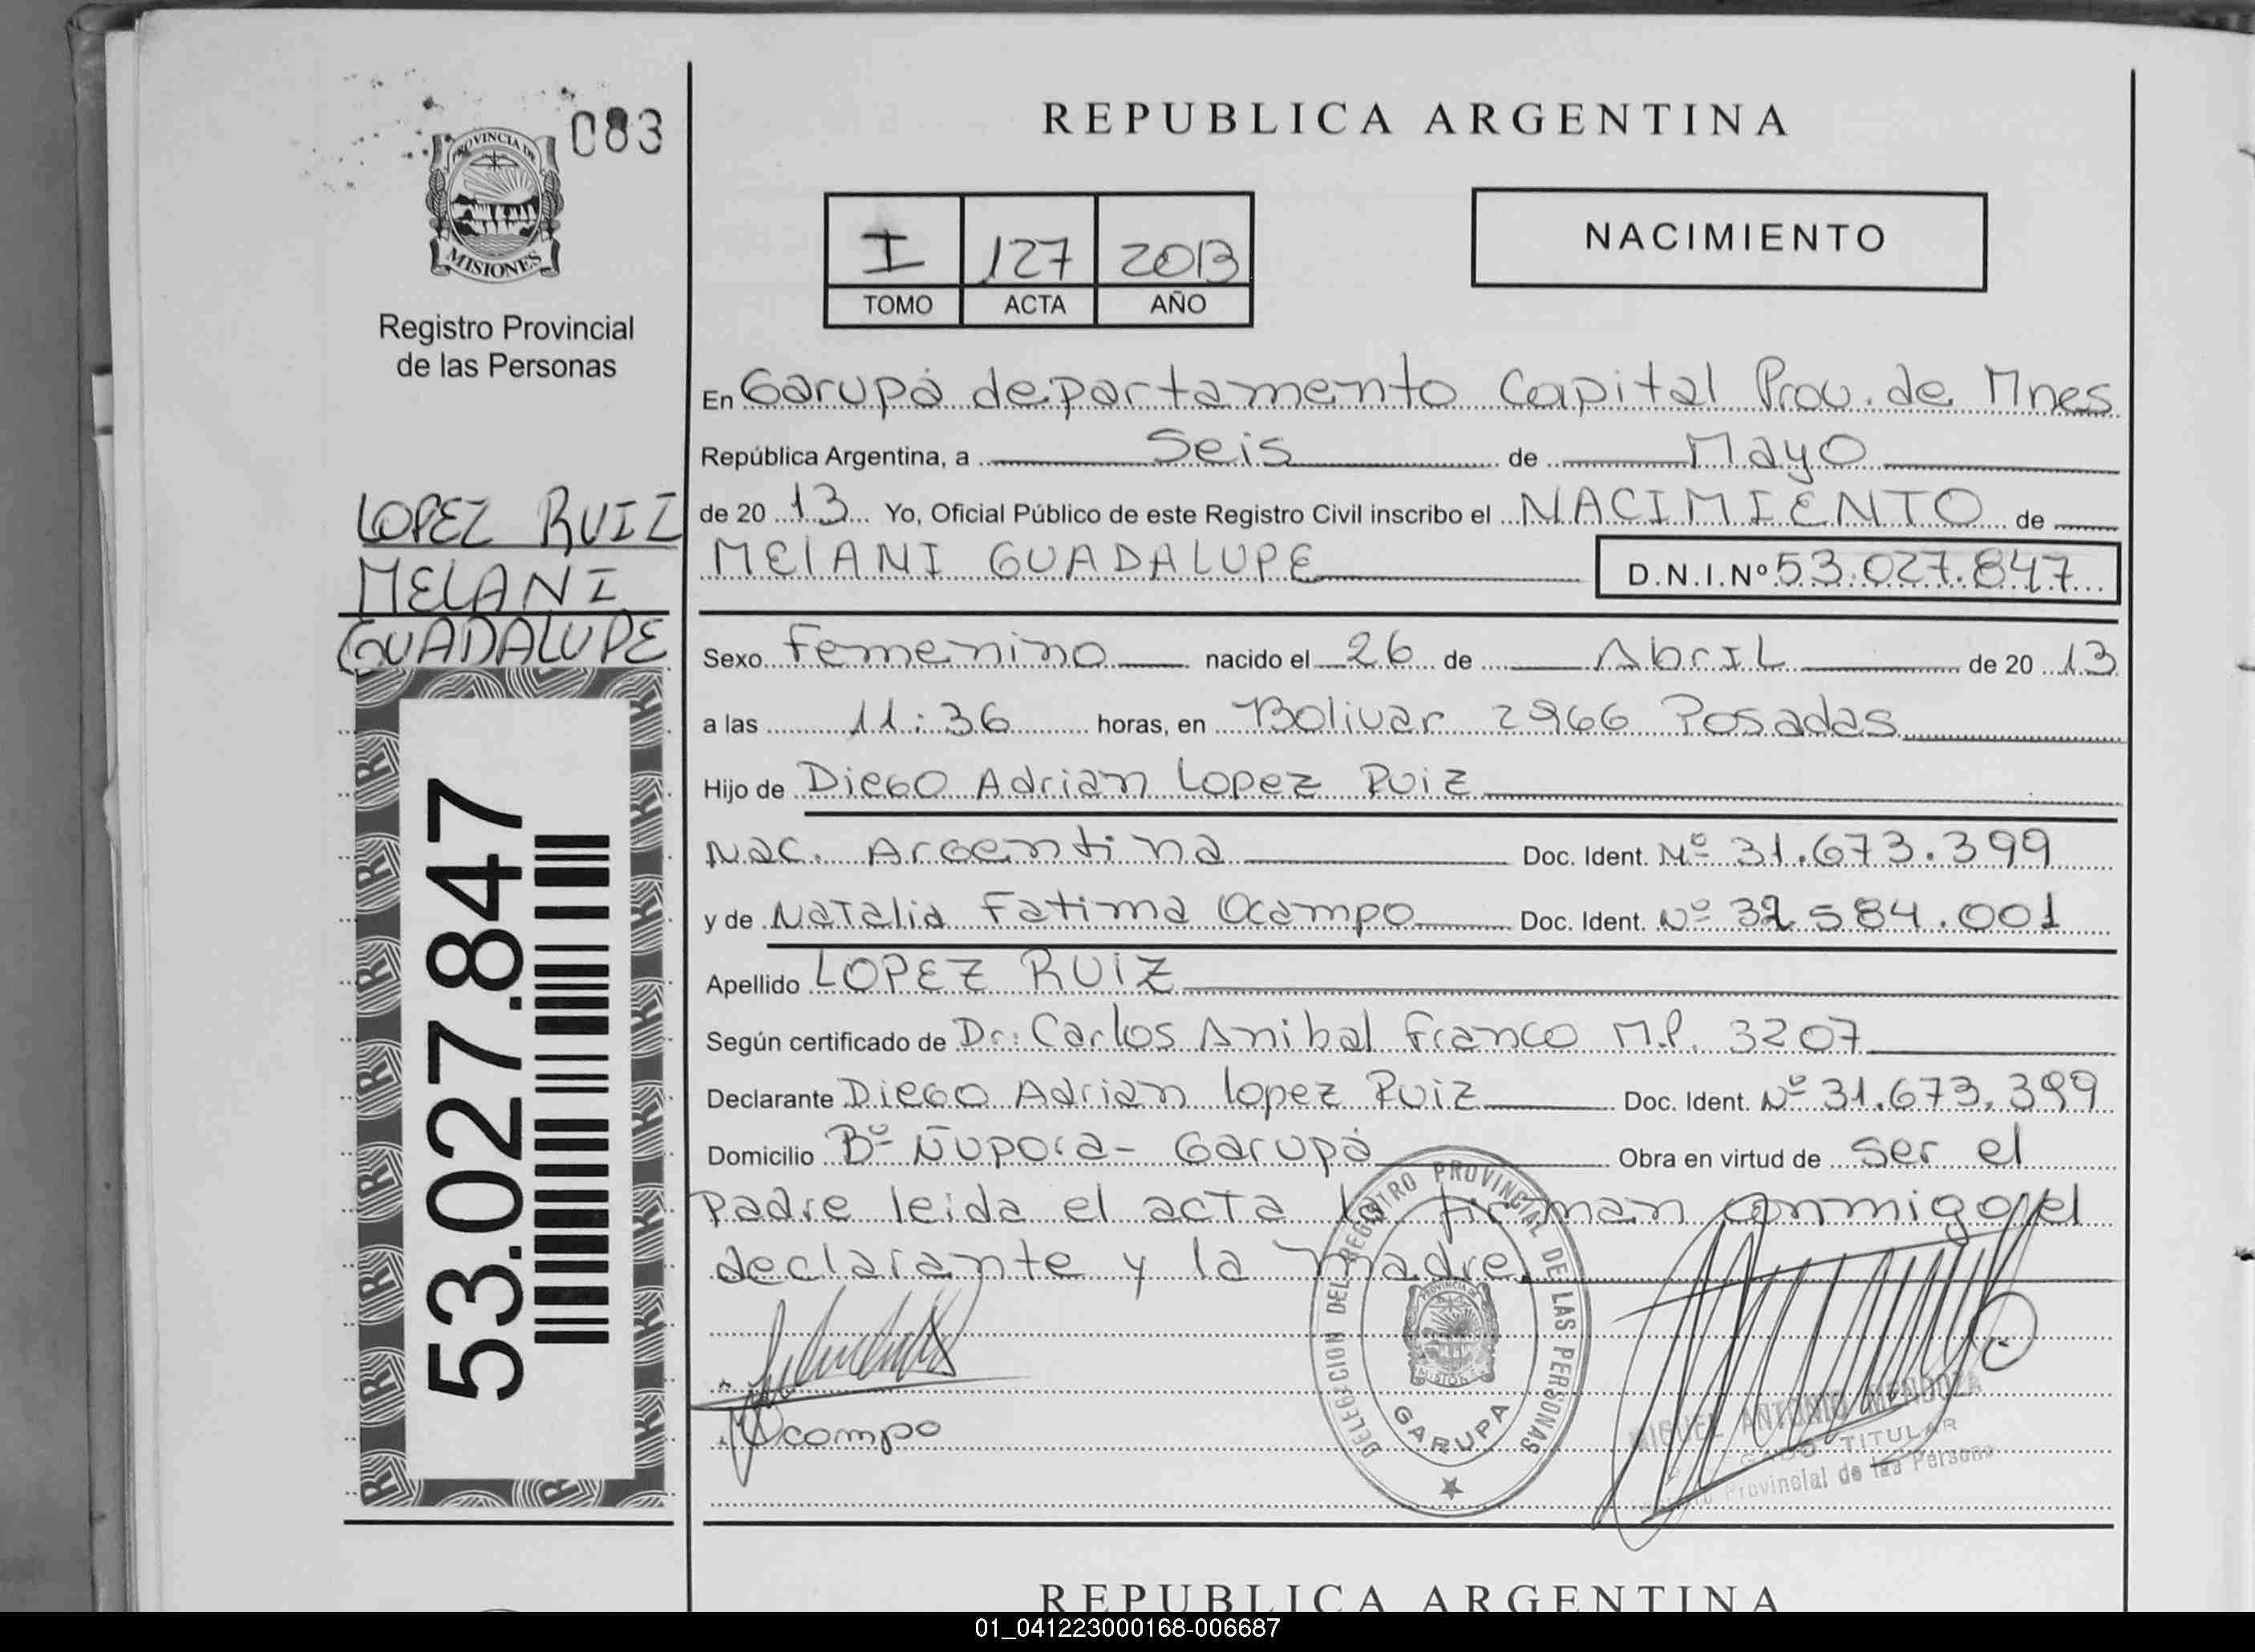 083
PROVINCIA DE
MISIONES
Registro Provincial
de las Personas
LOPEZ RUIZ
MELANI
GUADALUPE
53.027.847
REPUBLICA ARGENTINA
I 127 2013
TOMO ACTA AÑO
NACIMIENTO
En Garupá departamento Capital Prov. de Mnes
República Argentina, a Seis de Mayo
de 20 13 Yo, Oficial Público de este Registro Civil inscribo el NACIMIENTO de
MELANI GUADALUPE D.N.I.Nº 53.027.847
Sexo Femenino nacido el 26 de Abril de 20 13
a las 11:36 horas, en Bolivar 2966 Posadas
Hijo de Diego Adrian Lopez Ruiz
Nac. Argentina Doc. Ident. Nº 31.673.399
y de Natalia Fatima Ocampo Doc. Ident. Nº 32.584.001
Apellido LOPEZ RUIZ
Según certificado de Dr: Carlos Anibal Franco M.P. 3207
Declarante Diego Adrian Lopez Ruiz Doc. Ident. Nº 31.673.399
Domicilio Bº Ñupora - Garupá Obra en virtud de ser el
Padre leida el acta la firman conmigo el
declarante y la madre
Ocampo
DELEGACION DEL REGISTRO PROVINCIAL DE LAS PERSONAS
GARUPA
MIGUEL ANTONIO MENDOZA
TITULAR
Provincial de las Personas
REPUBLICA ARGENTINA
01_041223000168-006687